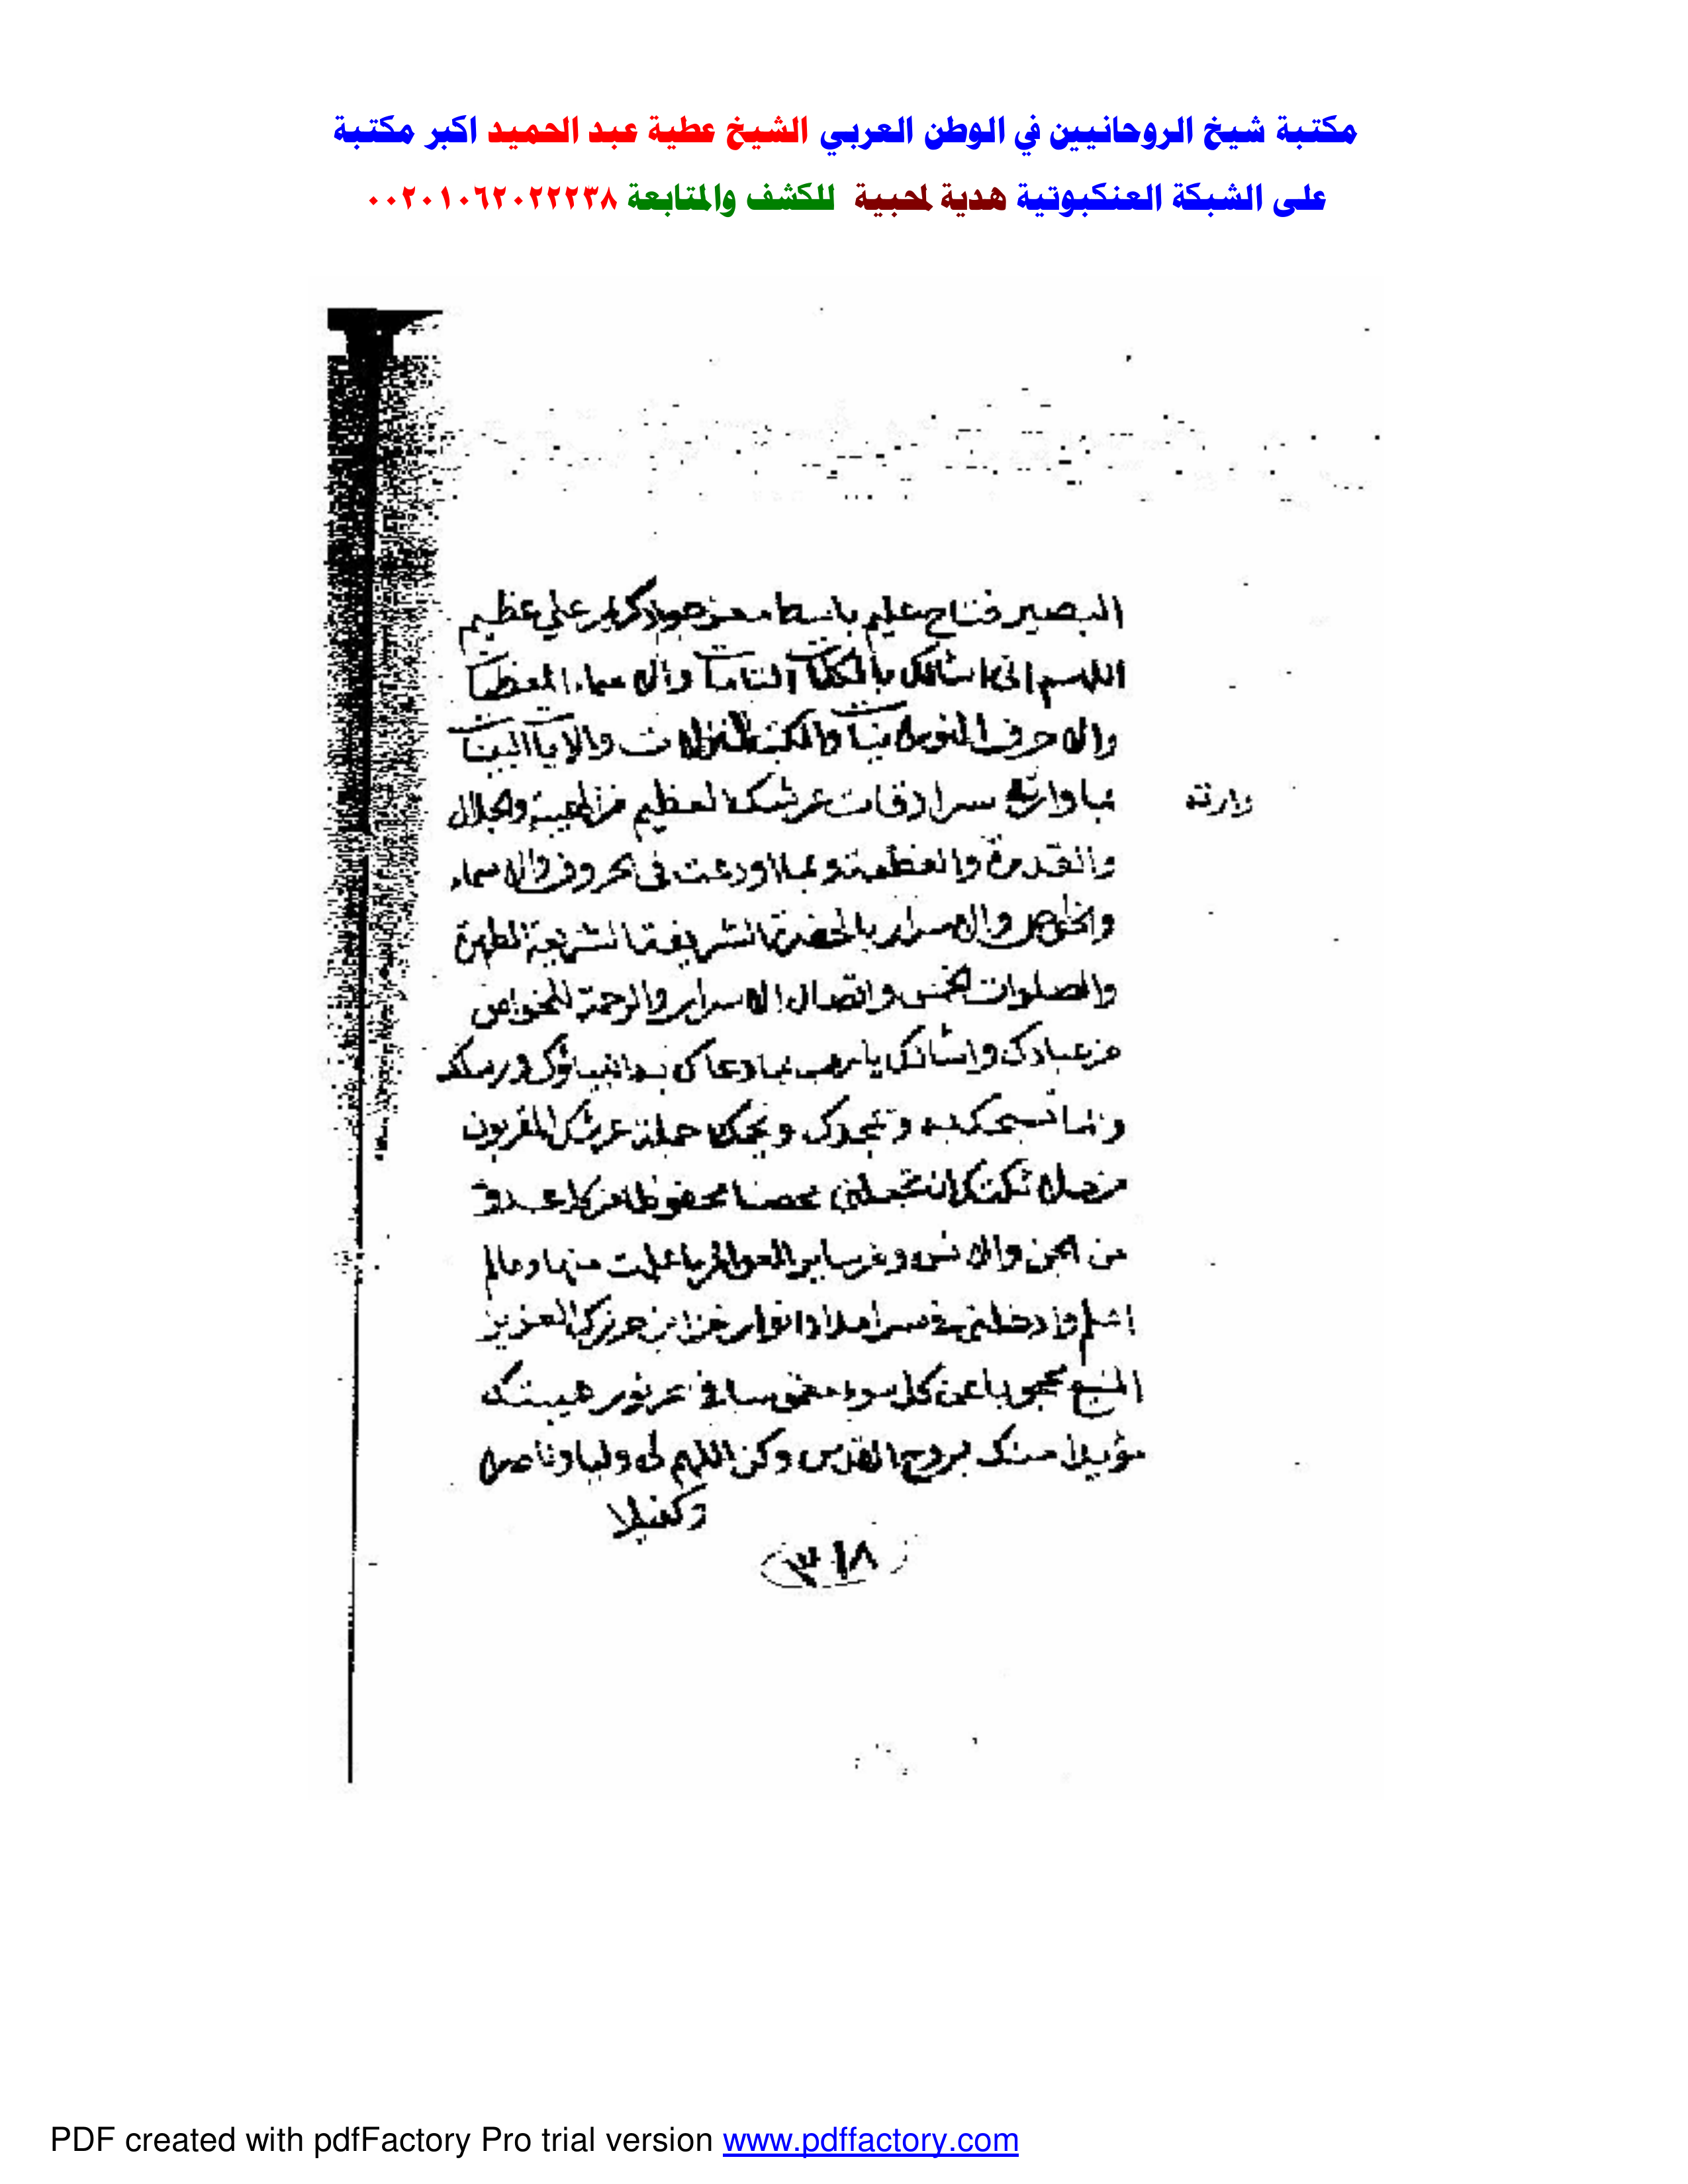 مكتبة شيخ الروحانيين في الوطن العربي الشيخ عطية عبد الحميد اكبر مكتبة
على الشبكة العنكبوتية هدية لمحبية للكشف والمتابعة ٠٠٢٠١٠٦٢٠٢٢٢٣٨
البصير فتاح عليم باسط معز جواد كريم علي عظيم
اللهم اني اسالك بالكلمات التامات والاسماء المعظمات
والاحرف النورانيات والكتب المنزلات والايات البينات
بما وارته سرادقات عرشك العظيم من الهيبة والجلال
وارته
والقدرة والعظمة وبما اودعت في الحروف والاسماء
والخواص والاسرار بالحضرة الشريفة الشريعة المطهرة
والصلوات الخمس واتصال الاسرار والرحمة للخواص
من عبادك واسالك يا رب بما دعاك به انبياؤك ورسلك
وبما تسبحك به وتمجدك حملة عرشك المقربون
ان تجعلني محصنا محفوظا من كل عدو
من الجن والانس ومن ساير العوالم ما علمت منها وما لم
اعلم وادخلني في سر امداد انوار خزاين عزك العزيز
المنيع محجوبا عن كل سوء مغموسا في بحر نور هيبتك
مؤيدا منك بروح القدس وكن اللهم لي وليا وناصرا
وكفيلا
٣١٨
PDF created with pdfFactory Pro trial version www.pdffactory.com